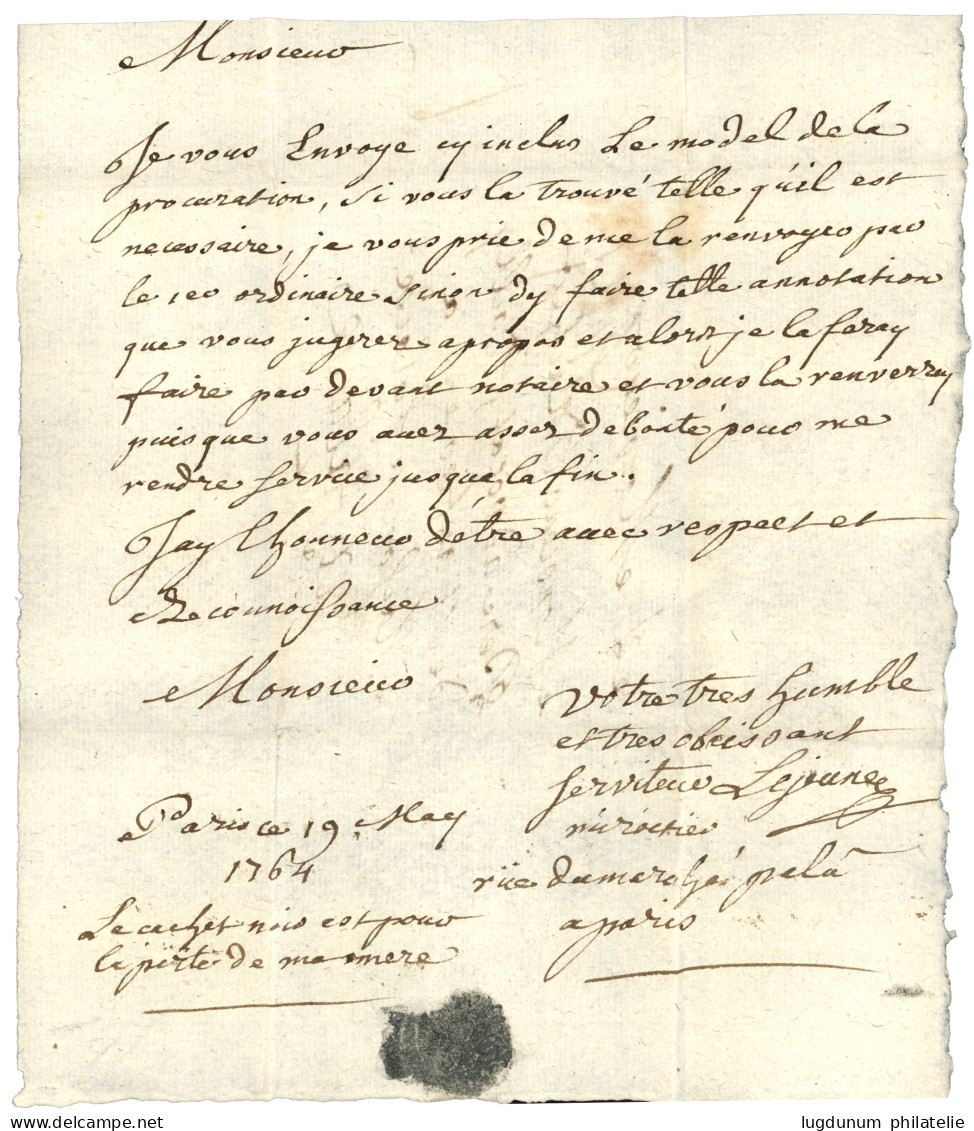 Monsieur
Je vous Envoye cy inclus Le model de la
procuration, si vous la trouvé telle qu'il est
necessaire, je vous prie de me la renvoyer par
le 1er ordinaire sinon dy faire telle annotation
que vous jugerez apropos et alors je la feray
faire par devant notaire et vous la renverray
puisque vous avez assez de bonté pour me
rendre service jusque la fin.
Jay Lhonneur d'être avec respect et
Reconnoissance
Monsieur
Votre tres humble
et tres obeissant
serviteur Lejeune
miroitier
rüe du marché palû
a paris
Paris ce 19 May
1764
Le cachet noir est pour
la perte de ma mere
lugdunum philatelie